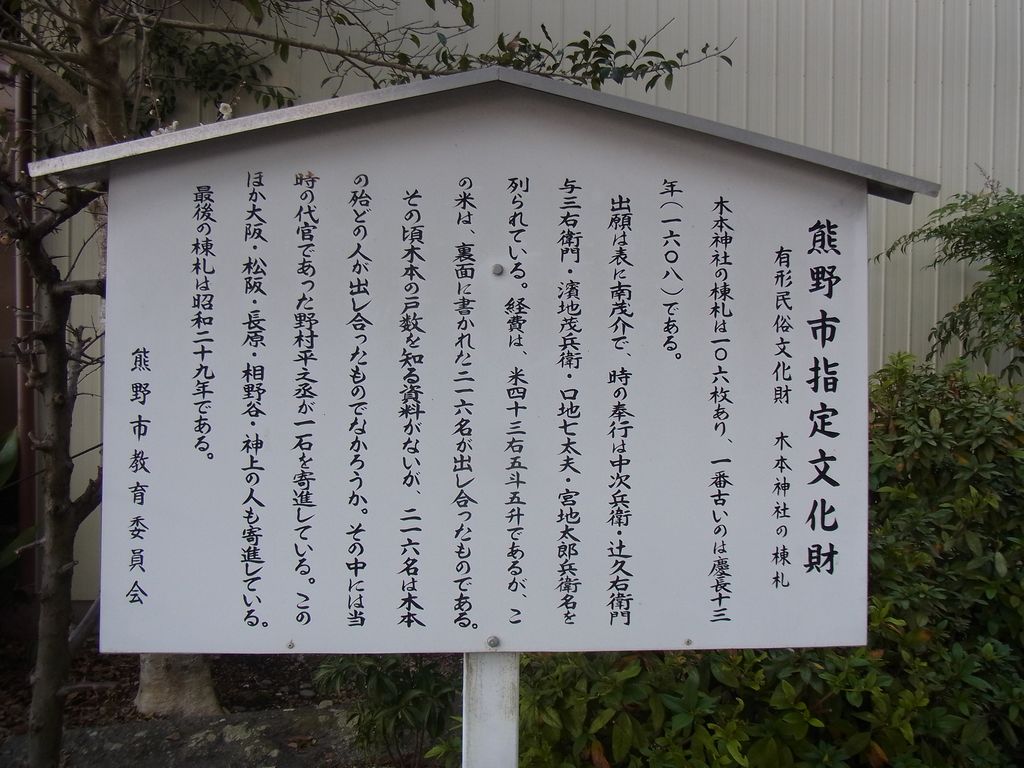 熊野市指定文化財
有形民俗文化財　木本神社の棟札
木本神社の棟札は一〇六枚あり、一番古いのは慶長十三
年(一六〇八)である。
出願は表に南茂介で、時の奉行は中次兵衛・辻久右衛門
与三右衛門・濱地茂兵衛・口地七太夫・宮地太郎兵衛名を
列られている。経費は、米四十三右五斗五升であるが、こ
の米は、裏面に書かれた二一六名が出し合ったものである。
その頃木本の戸数を知る資料がないが、二一六名は木本
の殆どの人が出し合ったものでなかろうか。その中には当
時の代官であった野村平之丞が一石を寄進している。この
ほか大阪・松阪・長原・相野谷・神上の人も寄進している。
最後の棟札は昭和二十九年である。
熊野市教育委員会